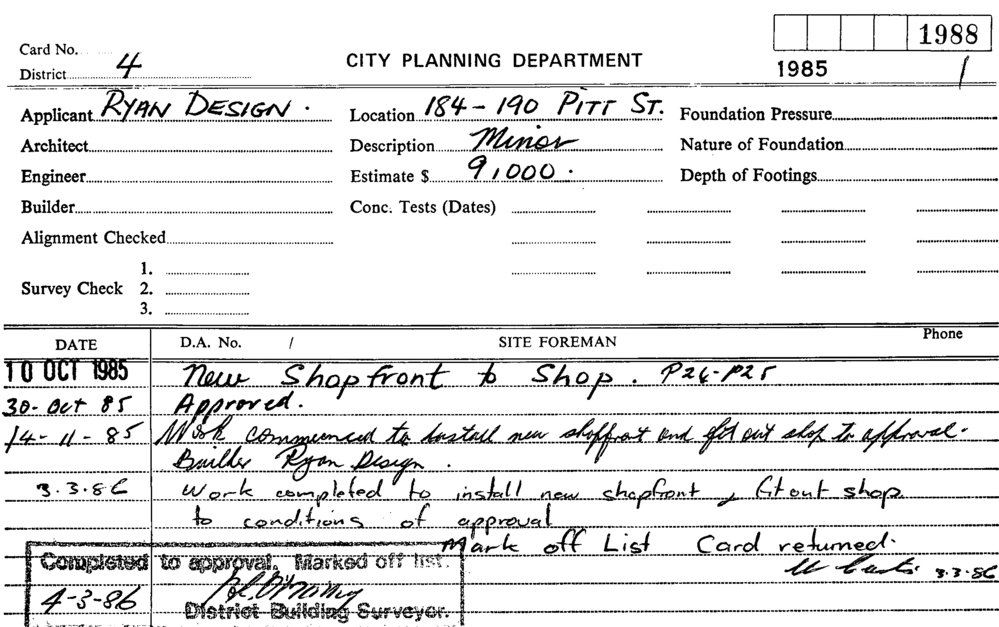 1988
Card No.
District 4
CITY PLANNING DEPARTMENT
1985 /
Applicant RYAN DESIGN . Location 184 - 190 PITT ST. Foundation Pressure
Architect Description Minor Nature of Foundation
Engineer Estimate $ 9,000 . Depth of Footings
Builder Conc. Tests (Dates)
Alignment Checked
1.
Survey Check 2.
3.
DATE D.A. No. / SITE FOREMAN Phone
10 OCT 1985 New Shopfront to Shop . P26-P25
30-Oct 85 Approved.
14-11-85 Work commenced to install new shopfront and fit out shop to approval.
Builder Ryan Design .
3.3.86 Work completed to install new shopfront , fit out shop
to conditions of approval
Mark off List Card returned.
3.3.86
Completed to approval. Marked off list.
4-3-86
District Building Surveyor.